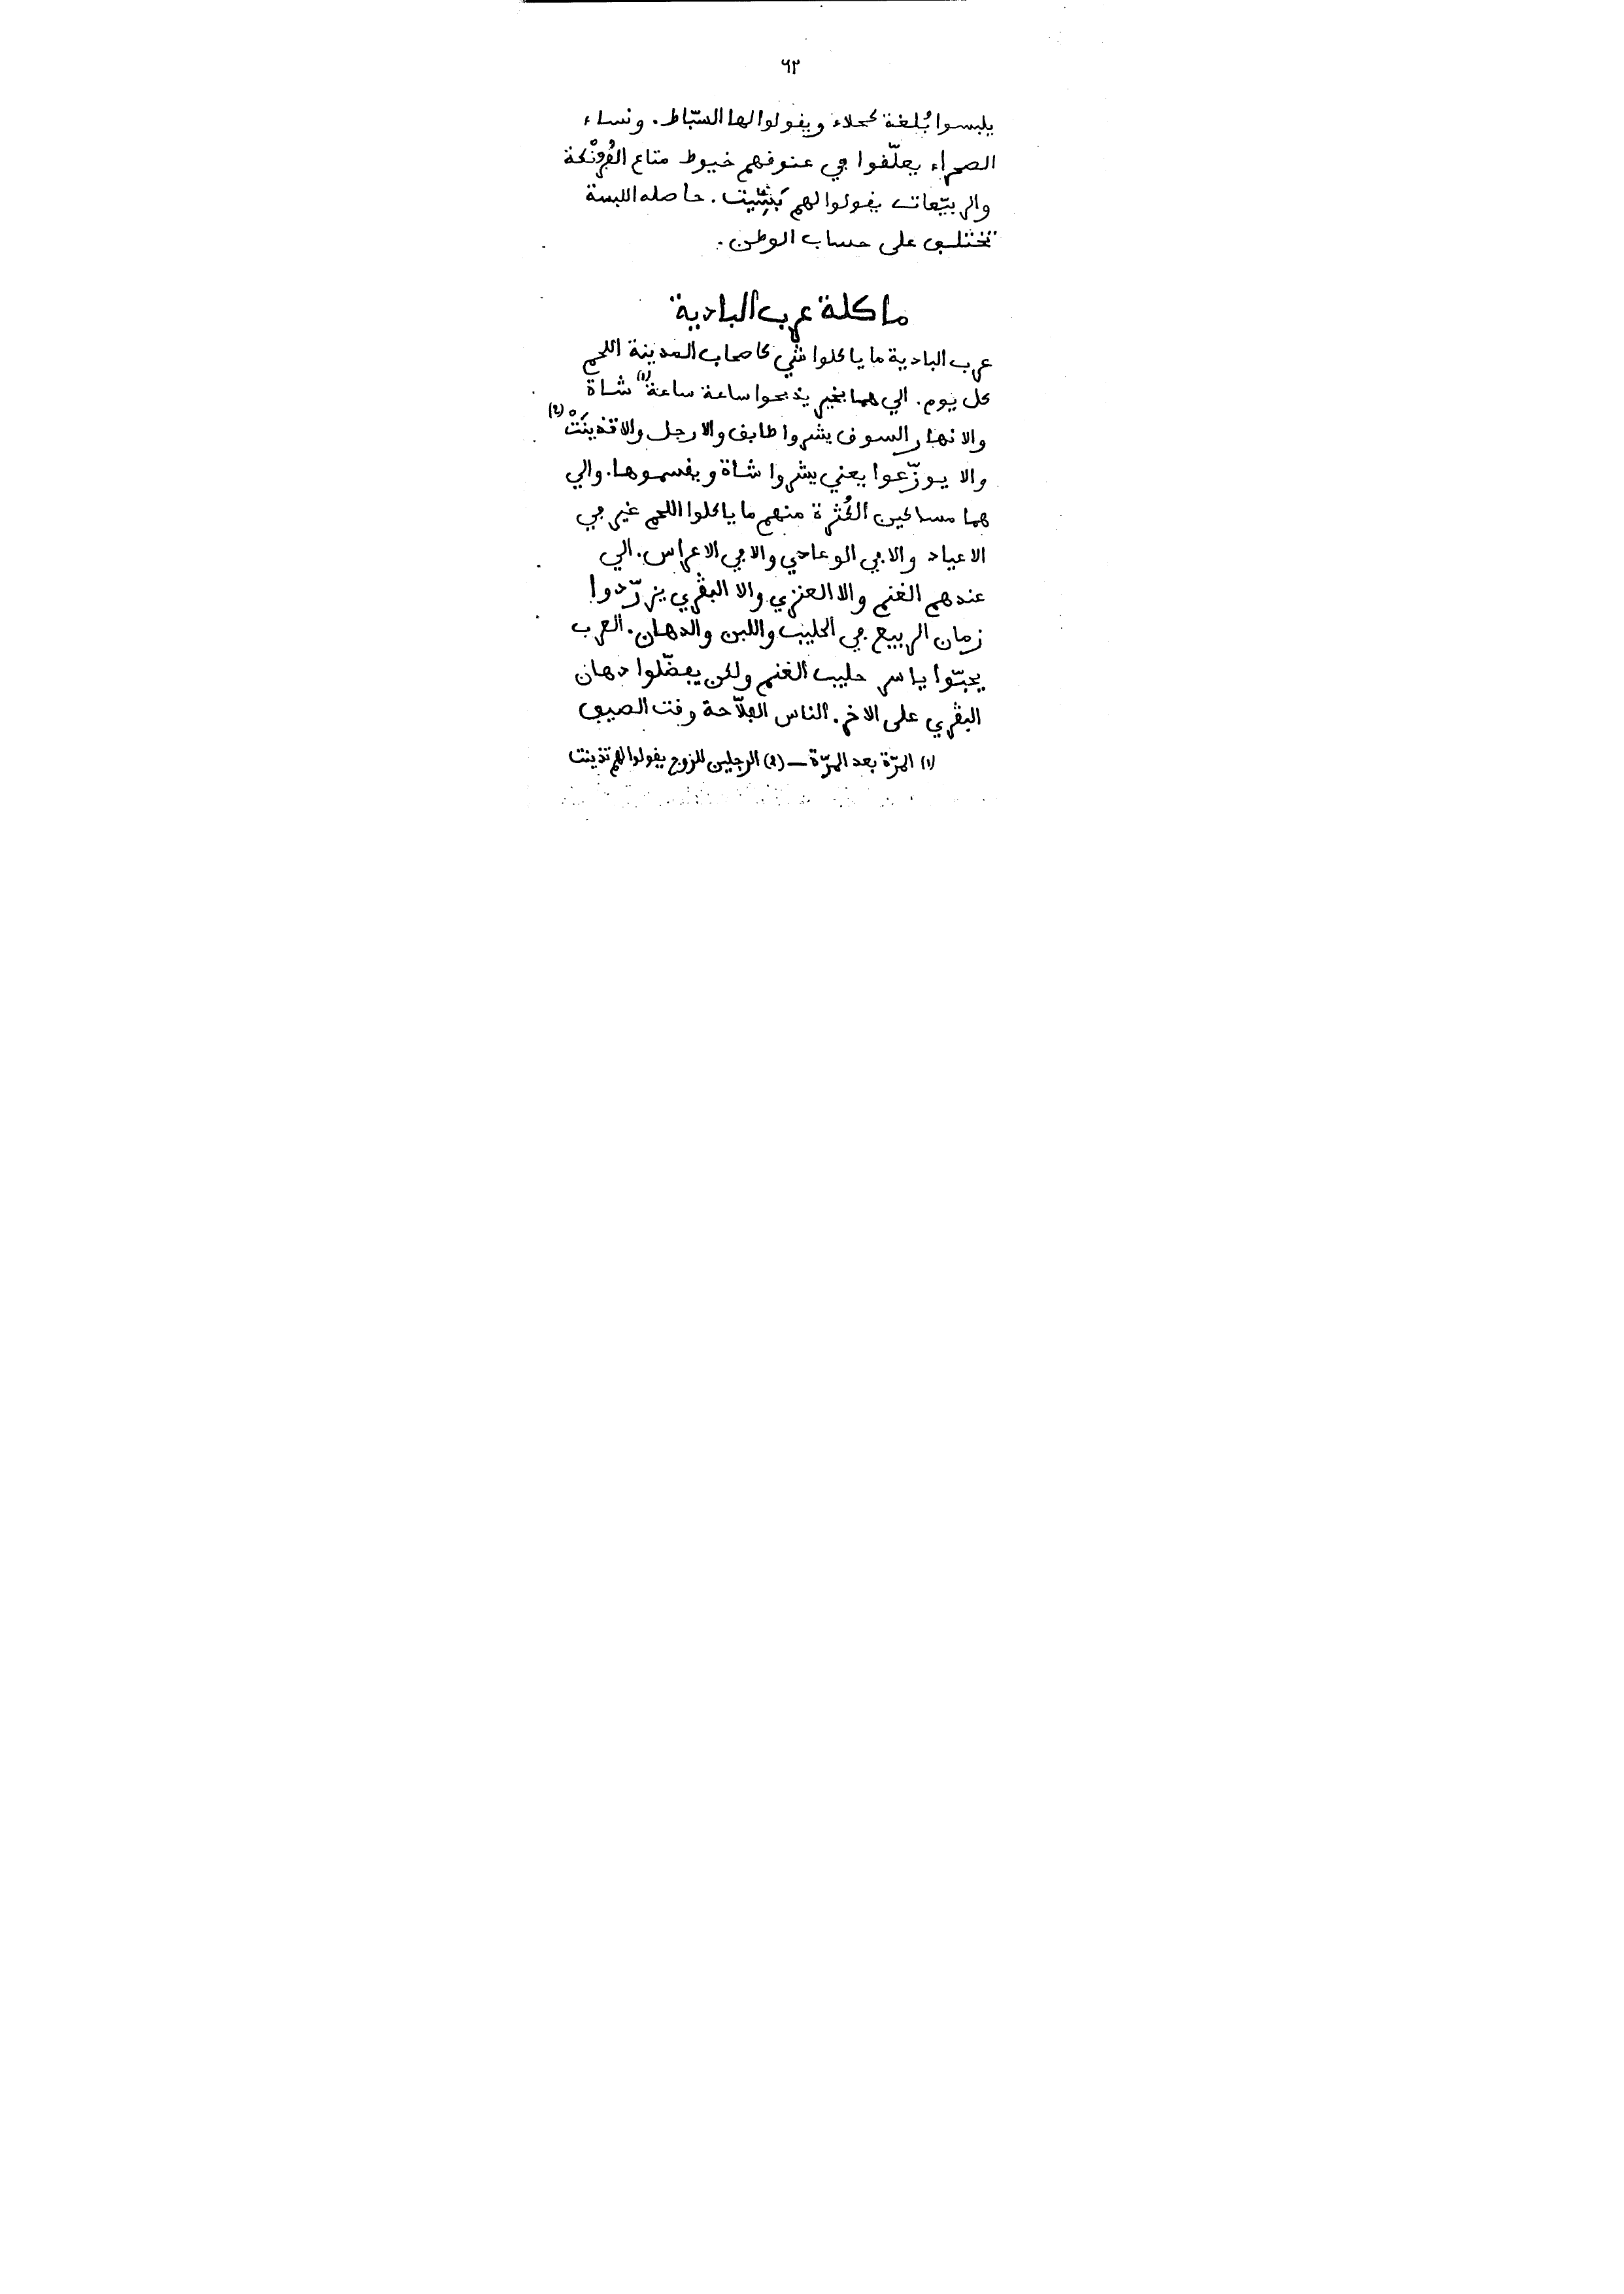 ٦٢
يلبسوا بُلغة كحلاء ويقولوا لها السّبّاط. ونساء
الصحراء يعلّقوا في عنوقهم خيوط متاع القُرُنْكة
والربيّعات يقولوا لهم . حاصله اللبسة
تختلف على حساب الوطن.
ماكلة عرب البادية
عرب البادية ما ياكلوا شّي كاصحاب المدينة اللحم
كل يوم. الي هما بخير يذبحوا ساعة ساعة(١) شاة
والا نهار السوق يشروا طابق والا رجل والا تذينَتْ(٢)
والا يوزّعوا يعني يشروا شاة ويقسموها. والي
هما مساكين الكُثرة منهم ما ياكلوا اللحم غير في
الاعياد والا في الوعادي والا في الاعراس. الي
عندهم الغنم والا العنزي والا البڨري يزرّدوا
زمان الربيع في الحليب واللبن والدهان. العرب
يحبّوا ياسر حليب الغنم ولكن يفضّلوا دهان
البڨري على الاخر. الناس الفلّاحة وقت الصيف
(١) المرّة بعد المرّة — (٢) الرجلين للزوج يقولوا لهم تذينت